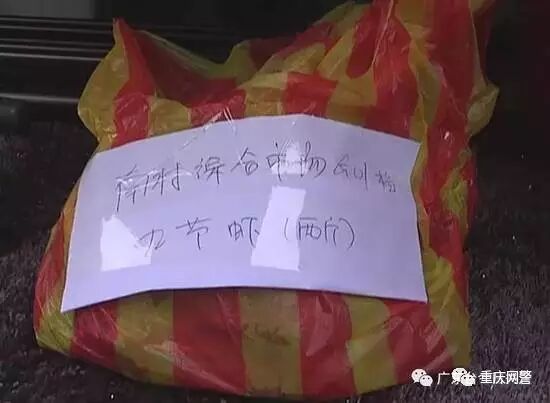 南村综合市场 档
九节虾(两斤)
广东台 重庆网警